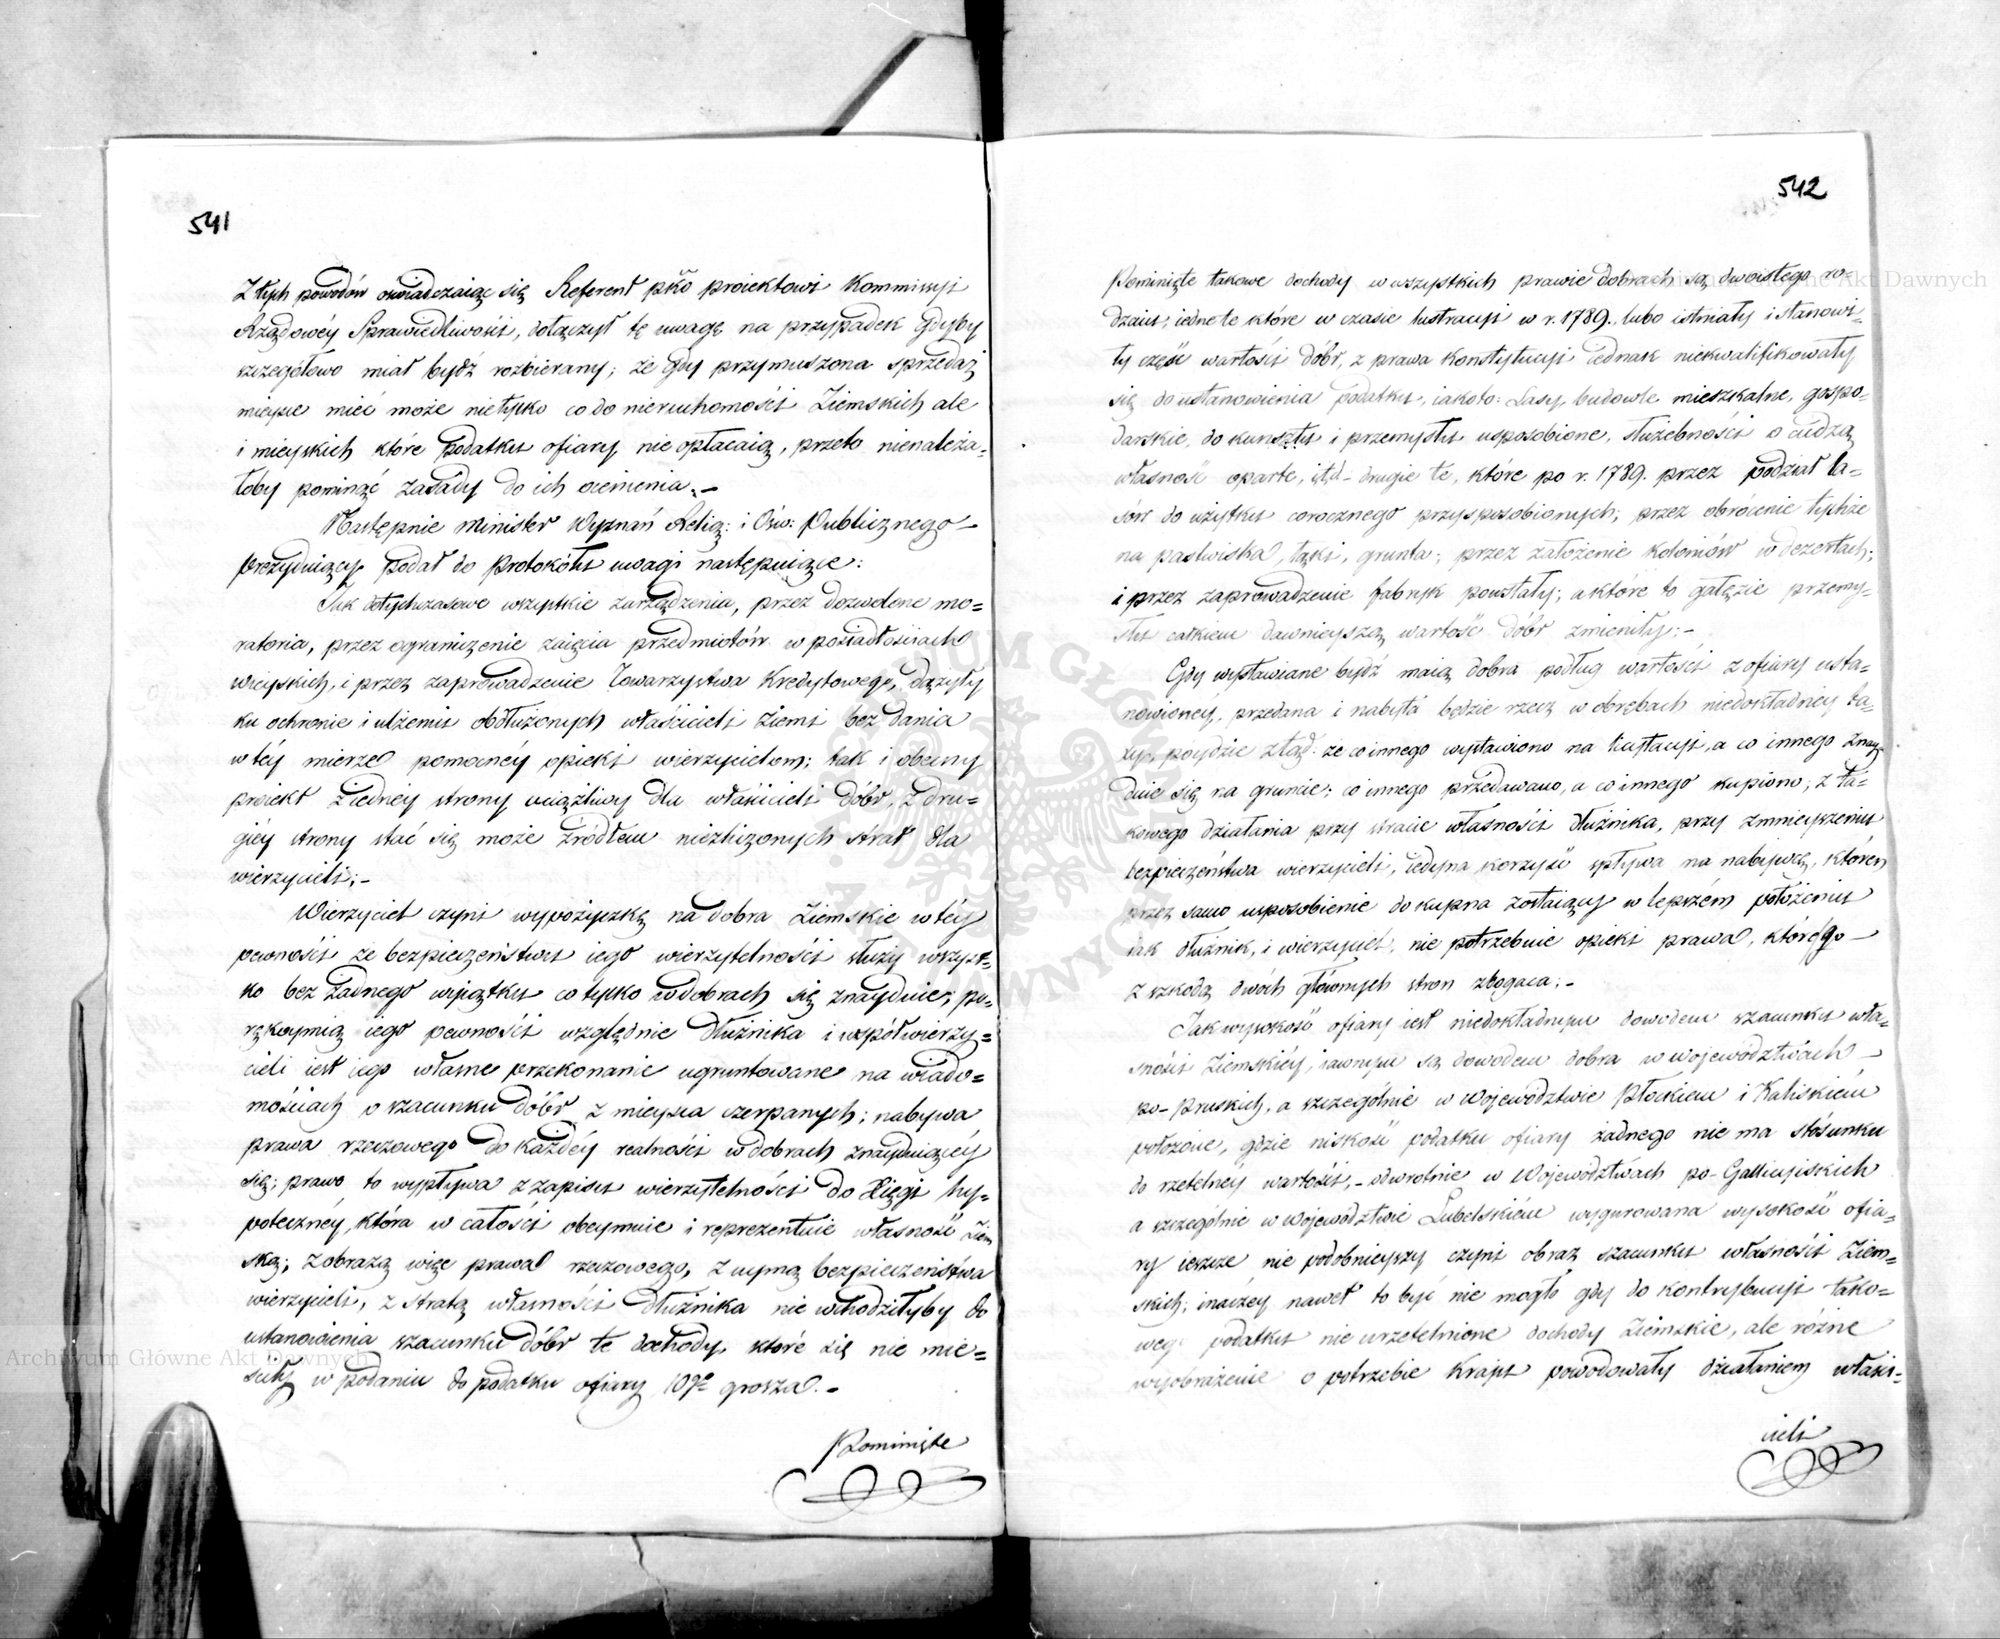 541
Z tych powodów oświadczaiąc się Referent pko proiektowi Kommissyi
Rządowéy Sprawiedliwości, dołączył tę uwagę na przypadek gdyby
szczegółowo miał bydź rozbierany; że gdy przymuszona sprzedaż
mieysce mieć może nietylko co do nieruchomości Ziemskich ale
i mieyskich które podatku ofiary nie opłacaią, przeto nienależa-
łoby pominąć zasady do ich ocenienia. –
Następnie Minister Wyznań Relig: i Ośw: Publicznego
prezyduiący podał do Protokółu uwagi następuiące:
Jak dotychczasowe wszystkie zarządzenia, przez dozwolone mo=
ratoria, przez ograniczenie zaięcia przedmiotów w posiadłościach
wieyskich, i przez zaprowadzenie Towarzystwa Kredytowego, dążyły
ku ochronie i ulżeniu obdłużonych właścicieli ziemi bez dania
w téy mierze pomocnéy opieki wierzycielom; tak i obecny
proiekt z iednéy strony uciążliwy dla właścicieli dóbr, z dru=
giéy strony stać się może źródłem niezliczonych strat dla
wierzycieli; –
Wierzyciel czyni wypożyczkę na dobra Ziemskie w téy
pewności że bezpieczeństwu iego wierzytelności służy wszyst=
ko bez żadnego wyiątku co tylko w dobrach się znayduie; po=
rękoymią iego pewności względnie dłużnika i współwierzy=
cieli iest iego własne przekonanie ugruntowane na wiado=
mościach o szacunku dóbr z mieysca czerpanych; nabywa
prawa rzeczowego do każdéy realności w dobrach znayduiącéy
się; prawo to wypływa z zapisu wierzytelności do Xięgi hy=
potecznéy, która w całości obeymuie i reprezentuie własność Ziem
ską; z obrazą więc prawa rzeczowego, z uymą bezpieczeństwa
wierzycieli, z stratą własności dłużnika nie wchodziłyby do
ustanowienia szacunku dóbr te dochody które się nie mie=
ściły w podaniu do podatku ofiary 10go grosza. –
Pominięte
542
Pominięte takowe dochody w wszystkich prawie dobrach są dwoistego ro-
dzaiu; iedne te które w czasie lustracyi w r. 1789., lubo istniały i stanowi-
ły część wartości dóbr, z prawa Konstytucyi iednak niekwalifikowały
się do ustanowienia podatku, iakoto: Lasy, budowle mieszkalne, gospo-
darskie, do kunsztu i przemysłu usposobione, służebności o cudzą
własność oparte, itd – drugie te, które po r. 1789. przez podział la-
sów do użytku corocznego przysposobionych; przez obrócenie tychże
na pastwiska, łąki, grunta; przez założenie koloniów w dezertach;
i przez zaprowadzenie fabryk powstały; a które to gałęzie przemy-
słu całkiem dawnieyszą wartość dóbr zmieniły; –
Gdy wystawiane bydź maią dobra podług wartości z ofiary usta-
nowioney, przedana i nabyta będzie rzecz w obrębach niedokładney ta-
xy, póydzie ztąd że co innego wystawiono na licytacyi, a co innego znay-
duie się na gruncie; co innego przedawano, a co innego kupiono; z ta-
kowego działania przy stracie własności dłużnika, przy zmnieyszeniu
bezpieczeństwa wierzycieli, iedyna korzyść spływa na nabywcę, któren
przez samo usposobienie do kupna zostaiący w lepszém położeniu
iak dłużnik, i wierzyciel, nie potrzebuie opieki prawa, którego –
z szkodą dwóch głównych stron zbogaca; –
Jak wysokość ofiary iest niedokładnym dowodem szacunku wła-
sności Ziemskiéy, iawnym są dowodem dobra w Województwach –
po-Pruskich, a szczególnie w Województwie Płockiem i Kaliskiém
położone, gdzie niskość podatku ofiary żadnego nie ma stósunku
do rzetelnéy wartości, – odwrotnie w Województwach po-Gallicyiskich
a szczególnie w Województwie Lubelskiém wygurowana wysokość ofia-
ry ieszcze nie podobnieyszy czyni obraz szacunku własności Ziem=
skich; inaczéy nawet to być nie mogło gdy do kontrybucyi tako=
wego podatku nie urzetelnione dochody Ziemskie, ale różne
wyobrażenie o potrzebie Kraju powodowały działaniem właści=
cieli
Archiwum Główne Akt Dawnych